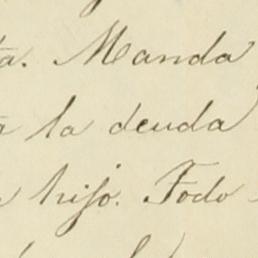 ta. Manda
la deuda
hijo. Fodo